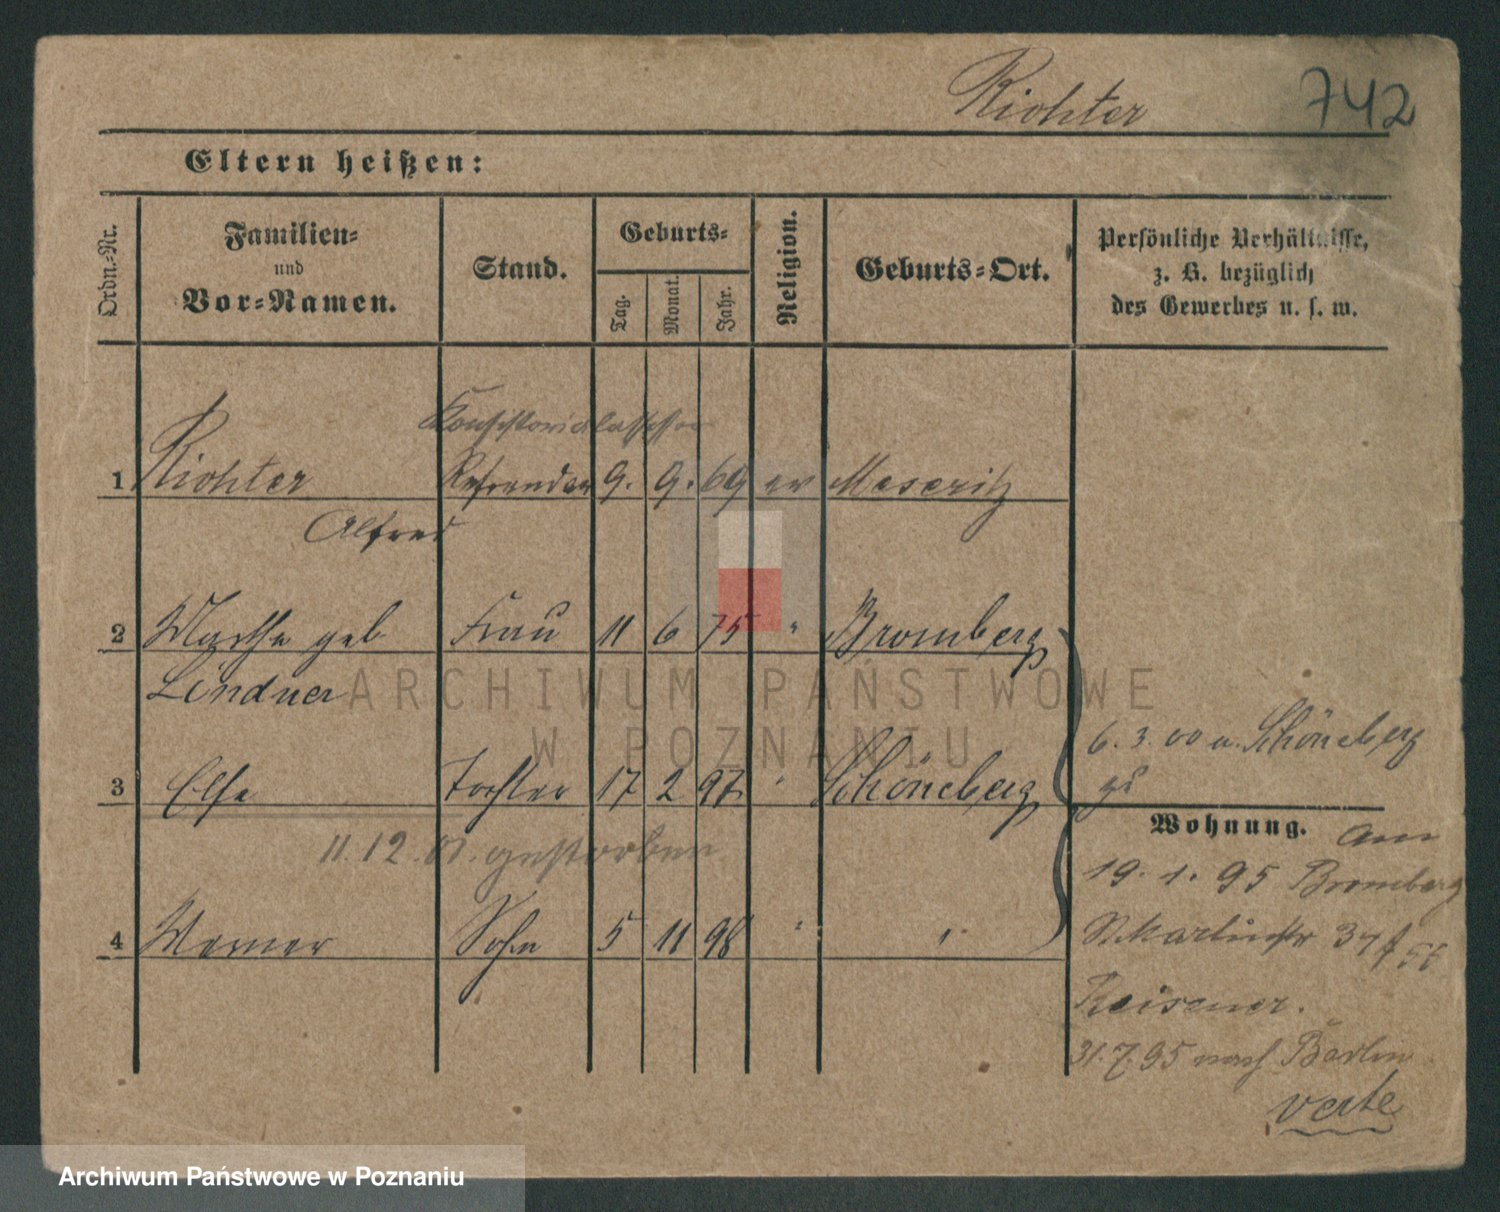 Richter 742
Eltern heißen:
Ordn.-Nr. Familien- und Vor-Namen. Stand. Geburts- Tag. Monat. Jahr. Religion. Geburts-Ort. Persönliche Verhältnisse, z. B. bezüglich des Gewerbes u. s. w.
Konsistorialassessor
1 Richter Refrendar 9. 9. 69 ev Meseritz
Alfred
2 Marthe geb Frau 11 6 75 " Bromberg
Lindner
6. 3. 00 u. Schöneberg
zu
3 Else Tochter 17 2 97 " Schöneberg
Wohnung. Am
11. 12. 01. gestorben
19. 1. 95 Bromberg
4 Werner Sohn 5 11 98 " "
St. Martinstr 37
Reisener.
31. 7. 95 nach Berlin
verte
ARCHIWUM PAŃSTWOWE
W POZNANIU
Archiwum Państwowe w Poznaniu